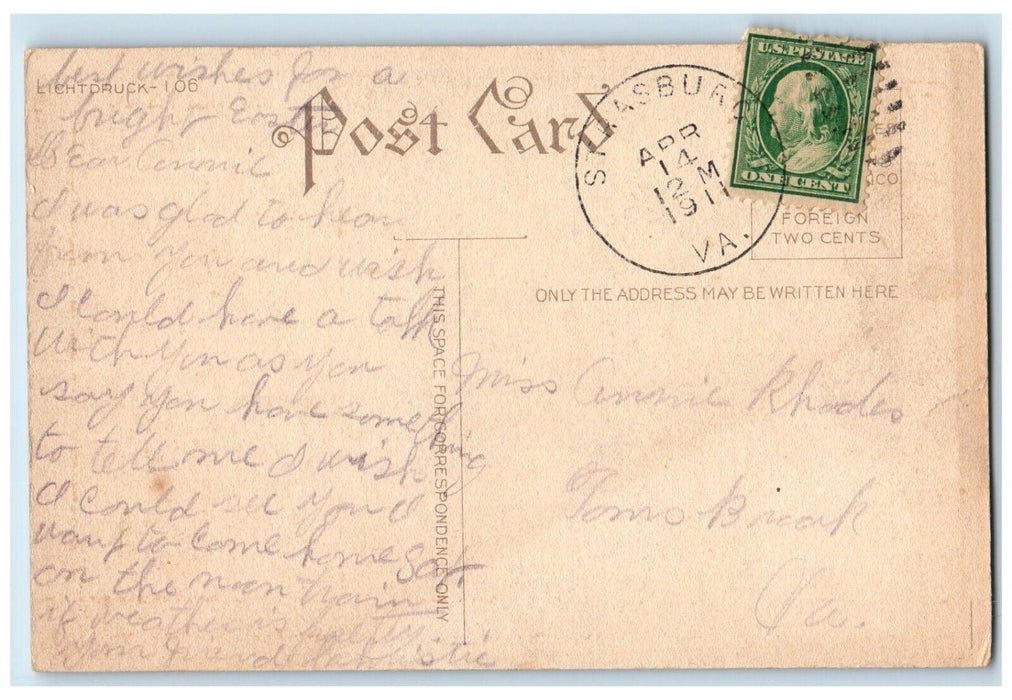 best wishes for a
LICHTDRUCK-106
bright Easter
Dear Annie
I was glad to hear
from you and wish
I could have a talk
with you as you
say you have something
to tell me I wish
I could see you I
want to come home Sat
on the noon train
if weather is
your friend
Post Card
THIS SPACE FOR CORRESPONDENCE ONLY
STRASBURG
APR
14
12 M
1911
VA.
U.S. POSTAGE
ONE CENT
FOREIGN
TWO CENTS
ONLY THE ADDRESS MAY BE WRITTEN HERE
Miss Annie Rhodes
Toms Brook
Va.